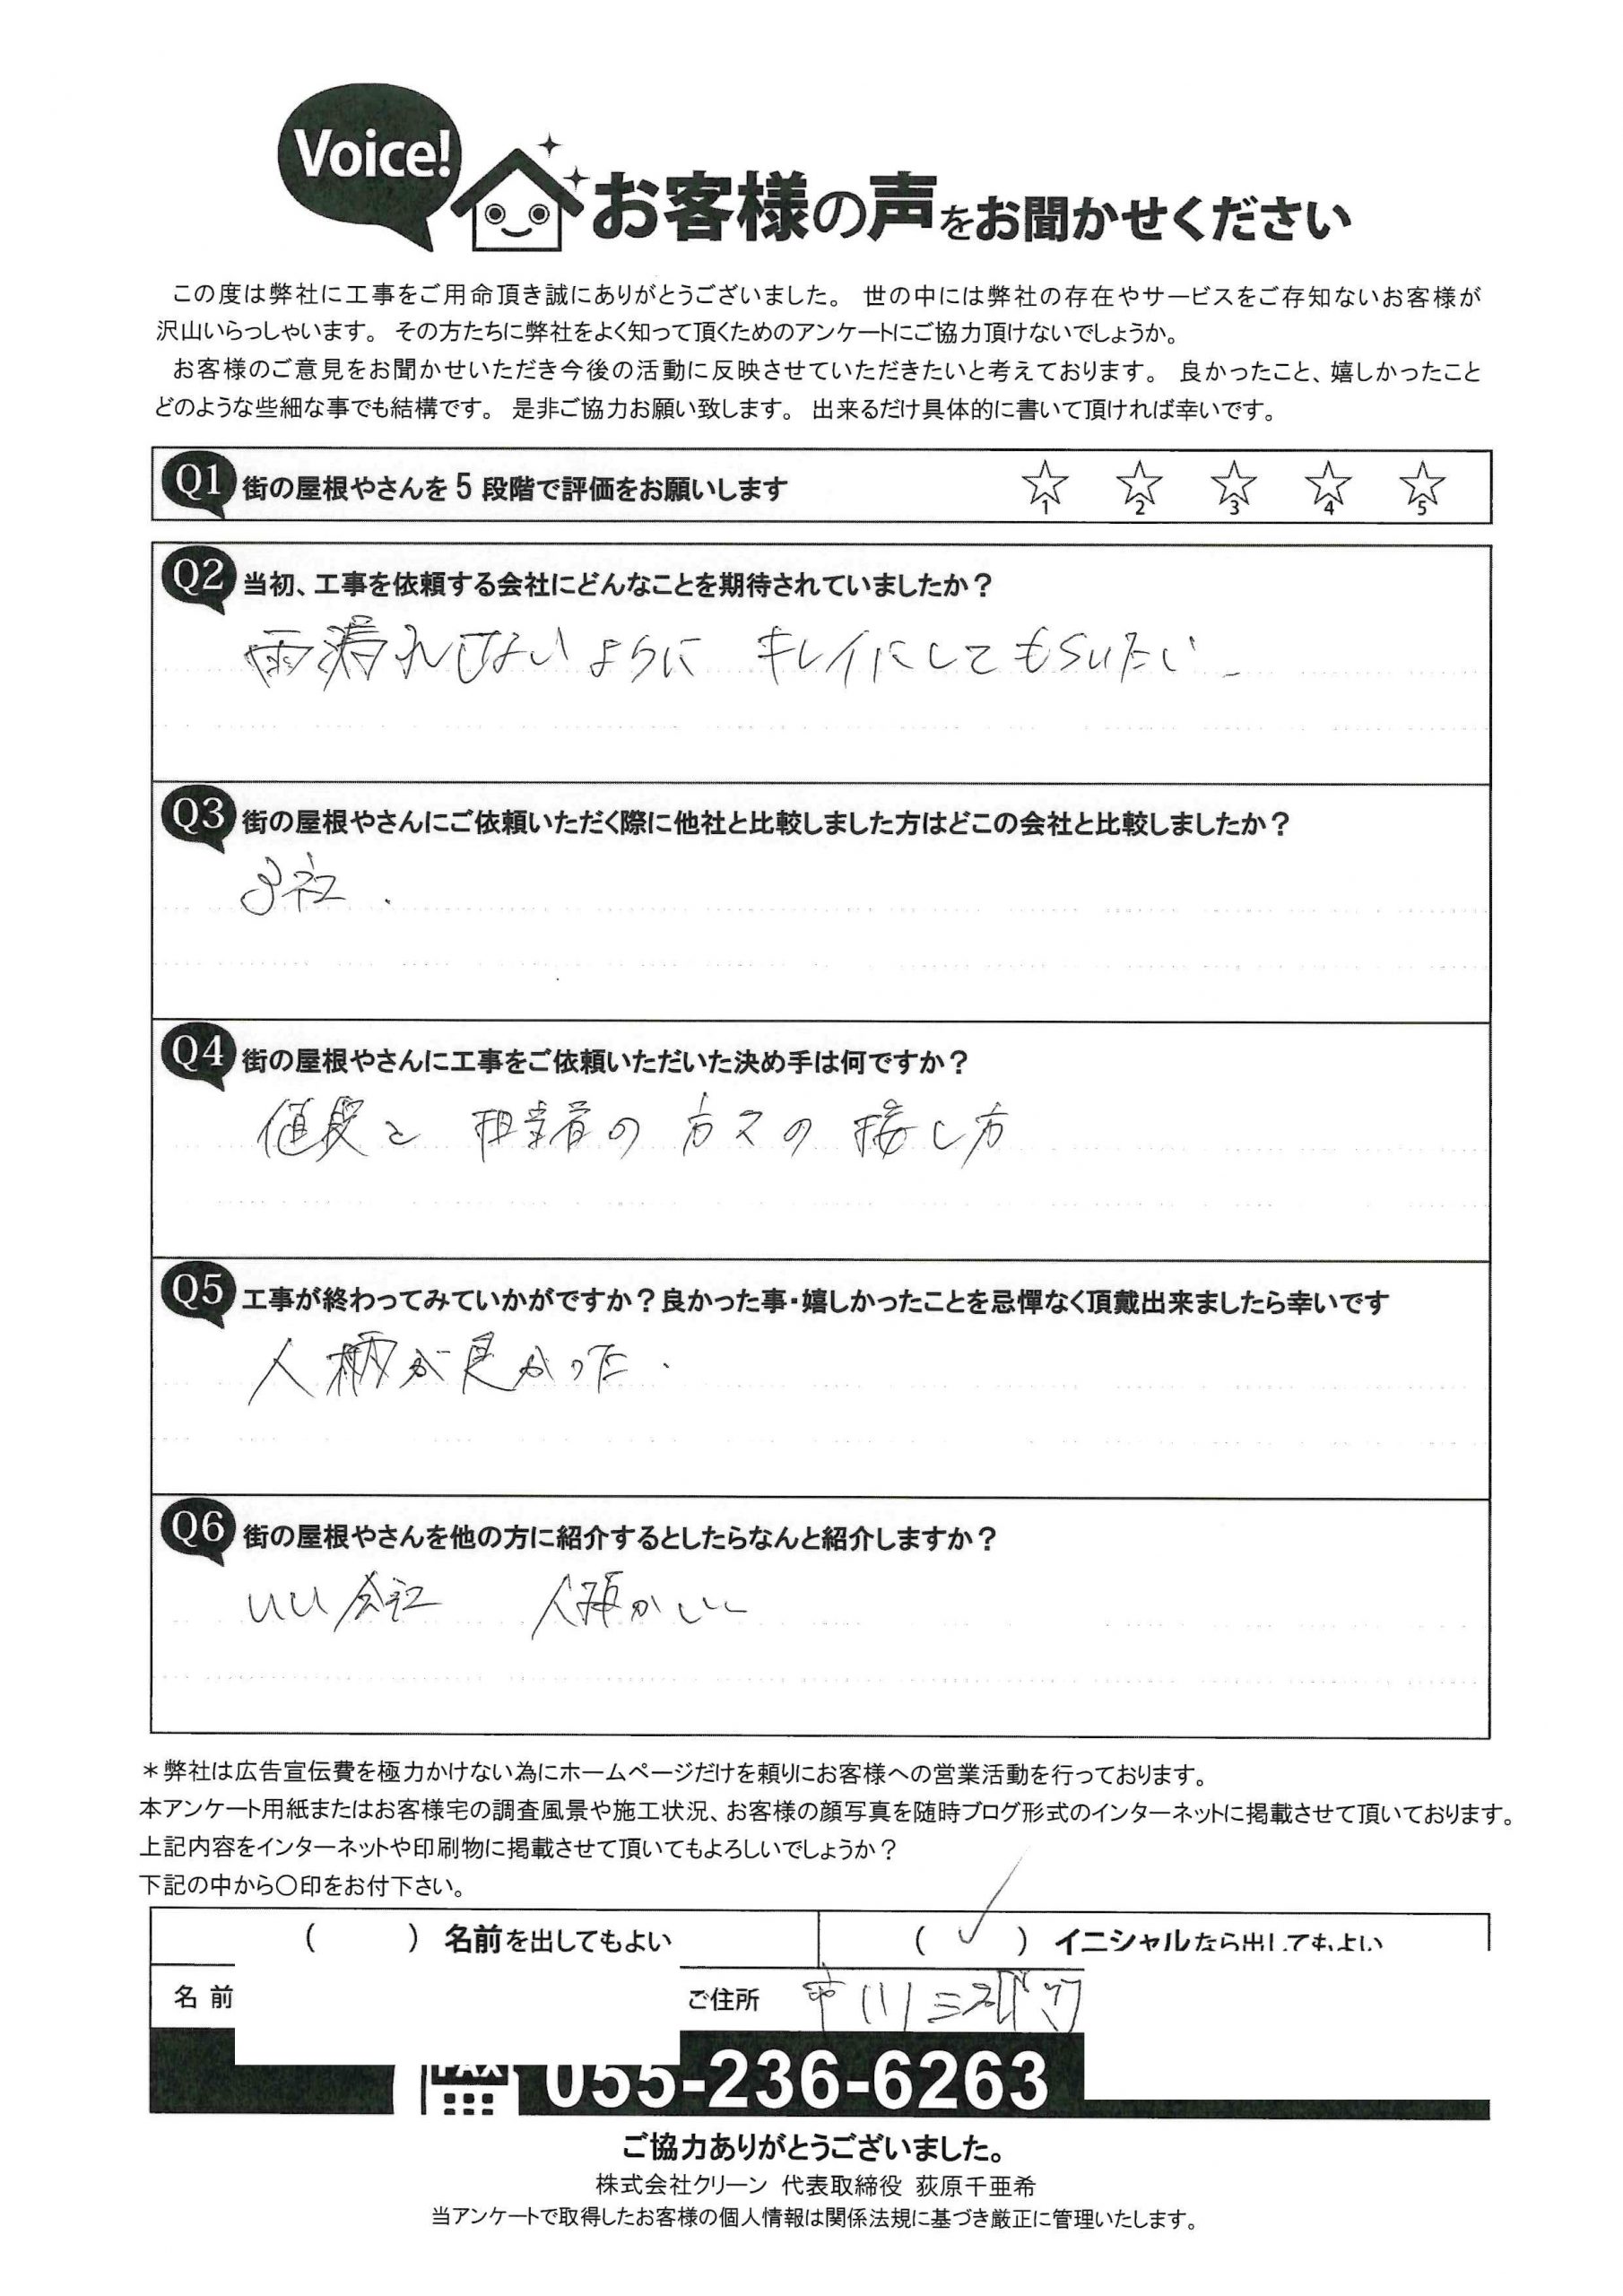 Voice!
お客様の声をお聞かせください
この度は弊社に工事をご用命頂き誠にありがとうございました。 世の中には弊社の存在やサービスをご存知ないお客様が
沢山いらっしゃいます。 その方たちに弊社をよく知って頂くためのアンケートにご協力頂けないでしょうか。
お客様のご意見をお聞かせいただき今後の活動に反映させていただきたいと考えております。 良かったこと、嬉しかったこと
どのような些細な事でも結構です。 是非ご協力お願い致します。 出来るだけ具体的に書いて頂ければ幸いです。
Q1 街の屋根やさんを5段階で評価をお願いします ☆1 ☆2 ☆3 ☆4 ☆5
Q2 当初、工事を依頼する会社にどんなことを期待されていましたか?
雨漏れしないように キレイにしてもらいたい
Q3 街の屋根やさんにご依頼いただく際に他社と比較しました方はどこの会社と比較しましたか?
3社.
Q4 街の屋根やさんに工事をご依頼いただいた決め手は何ですか?
値段と 担当者の 方々の 接し方
Q5 工事が終わってみていかがですか?良かった事・嬉しかったことを忌憚なく頂戴出来ましたら幸いです
人柄が良かった.
Q6 街の屋根やさんを他の方に紹介するとしたらなんと紹介しますか?
いい会社 人柄がいい
*弊社は広告宣伝費を極力かけない為にホームページだけを頼りにお客様への営業活動を行っております。
本アンケート用紙またはお客様宅の調査風景や施工状況、お客様の顔写真を随時ブログ形式のインターネットに掲載させて頂いております。
上記内容をインターネットや印刷物に掲載させて頂いてもよろしいでしょうか?
下記の中から○印をお付下さい。
( ) 名前を出してもよい (✓) イニシャルなら出してもよい
名前 ご住所 市川三郷町
FAX 055-236-6263
ご協力ありがとうございました。
株式会社クリーン 代表取締役 荻原千亜希
当アンケートで取得したお客様の個人情報は関係法規に基づき厳正に管理いたします。